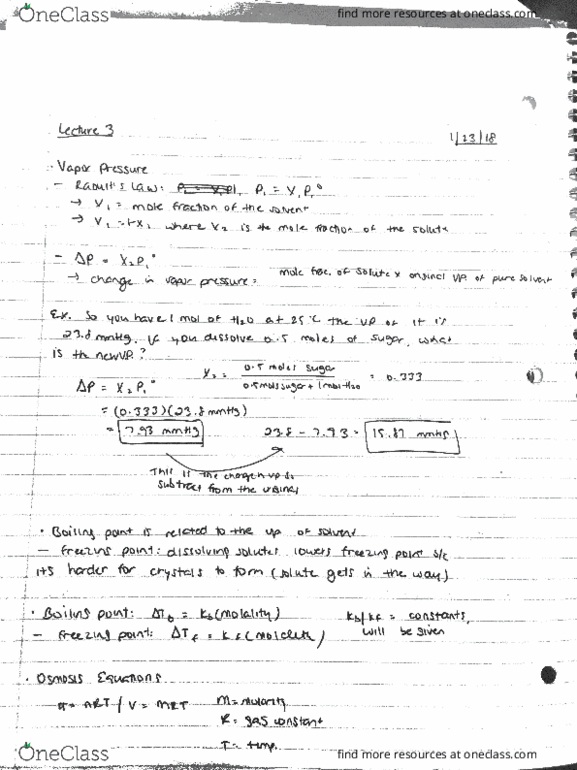 OneClass
find more resources at oneclass.com
Lecture 3
1/23/18
· Vapor Pressure
- Raoult's Law: P₁ = X₁P₁°
→ X₁ = mole fraction of the solvent
→ X₁ = 1-X₂ where X₂ is the mole fraction of the solute
- ΔP = X₂P₁°
→ change in vapor pressure = mole frac. of solute x original VP of pure solvent
Ex. So you have 1 mol of H₂O at 25°C the VP of it is
23.8 mmHg. If you dissolve 0.5 moles of sugar, what
is the new VP?
X₂ = 0.5 moles sugar / 0.5 mol sugar + 1 mol H₂O = 0.333
ΔP = X₂P₁°
= (0.333)(23.8 mmHg)
= 7.93 mmHg
23.8 - 7.93 = 15.87 mmHg
This is the change in vp so
subtract from the original
· Boiling point is related to the vp of solvent
- Freezing point: dissolving solutes lowers freezing point b/c
its harder for crystals to form (solute gets in the way)
· Boiling point: ΔT_b = K_b(molality)
K_b/K_f = constants,
will be given
- Freezing point: ΔT_f = K_f(molality)
· Osmosis Equations
π = nRT/V = MRT
M = molarity
R = gas constant
T = temp.
OneClass
find more resources at oneclass.com